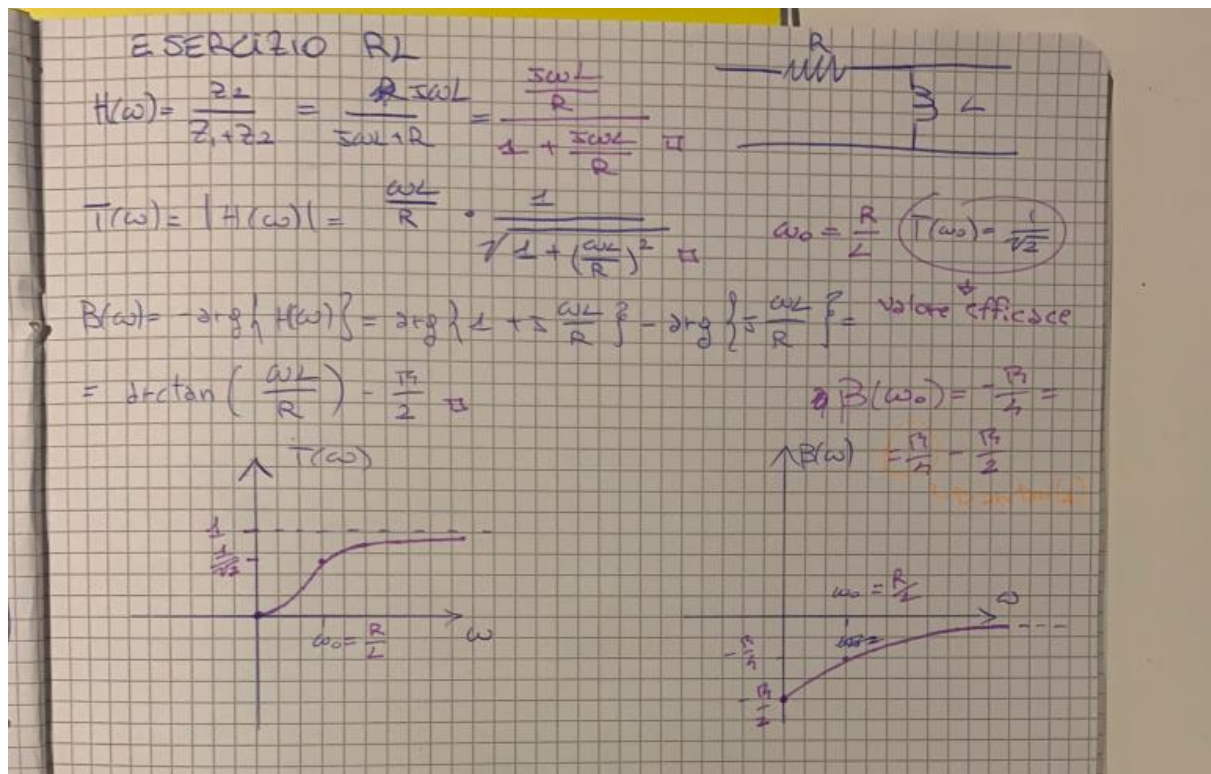 ESERCIZIO RL
R
L
H(ω) = Z2 / (Z1 + Z2) = JωL / (JωL + R) = (JωL / R) / (1 + JωL / R)
T(ω) = |H(ω)| = ωL / R · 1 / √(1 + (ωL / R)²)
ω0 = R / L T(ω0) = 1 / √2
valore efficace
B(ω) = -arg{H(ω)} = arg{1 + J ωL / R} - arg{J ωL / R} =
= arctan(ωL / R) - π / 2
B(ω0) = -π / 4 =
= π / 4 - π / 2
T(ω)
1
1 / √2
ω0 = R / L
ω
B(ω)
ω0 = R / L
ω
-π / 4
-π / 2